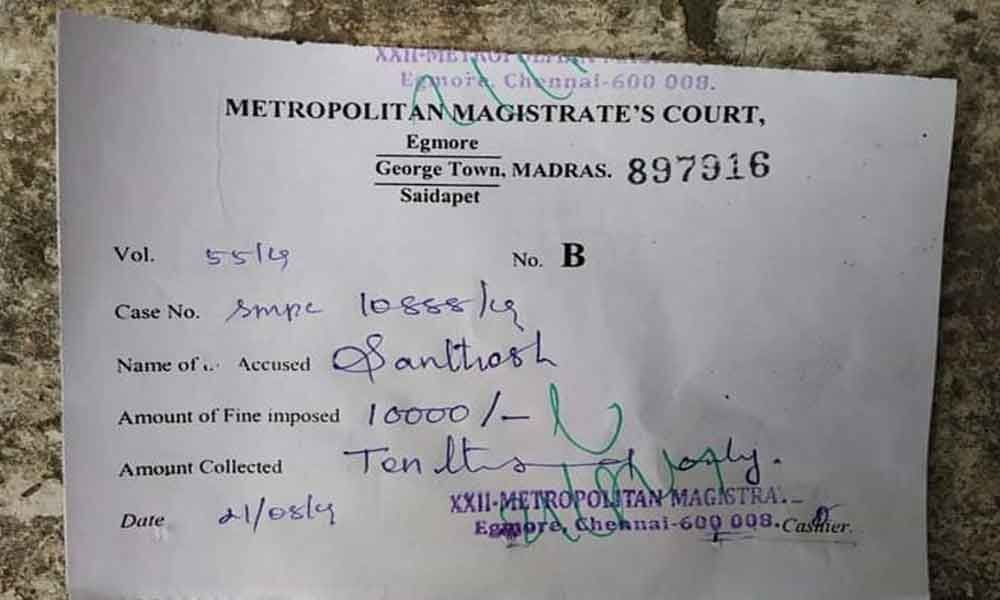 XXII-METROPOLITAN
Egmore, Chennai-600 008.
METROPOLITAN MAGISTRATE'S COURT,
Egmore
George Town, MADRAS. 897916
Saidapet
Vol. 55/19 No. B
Case No. smpc 10888/19
Name of Accused Santhosh
Amount of Fine imposed 10000/-
Amount Collected Ten only.
XXII-METROPOLITAN MAGISTRA
Date 21/08/19 Egmore, Chennai-600 008. Cashier.